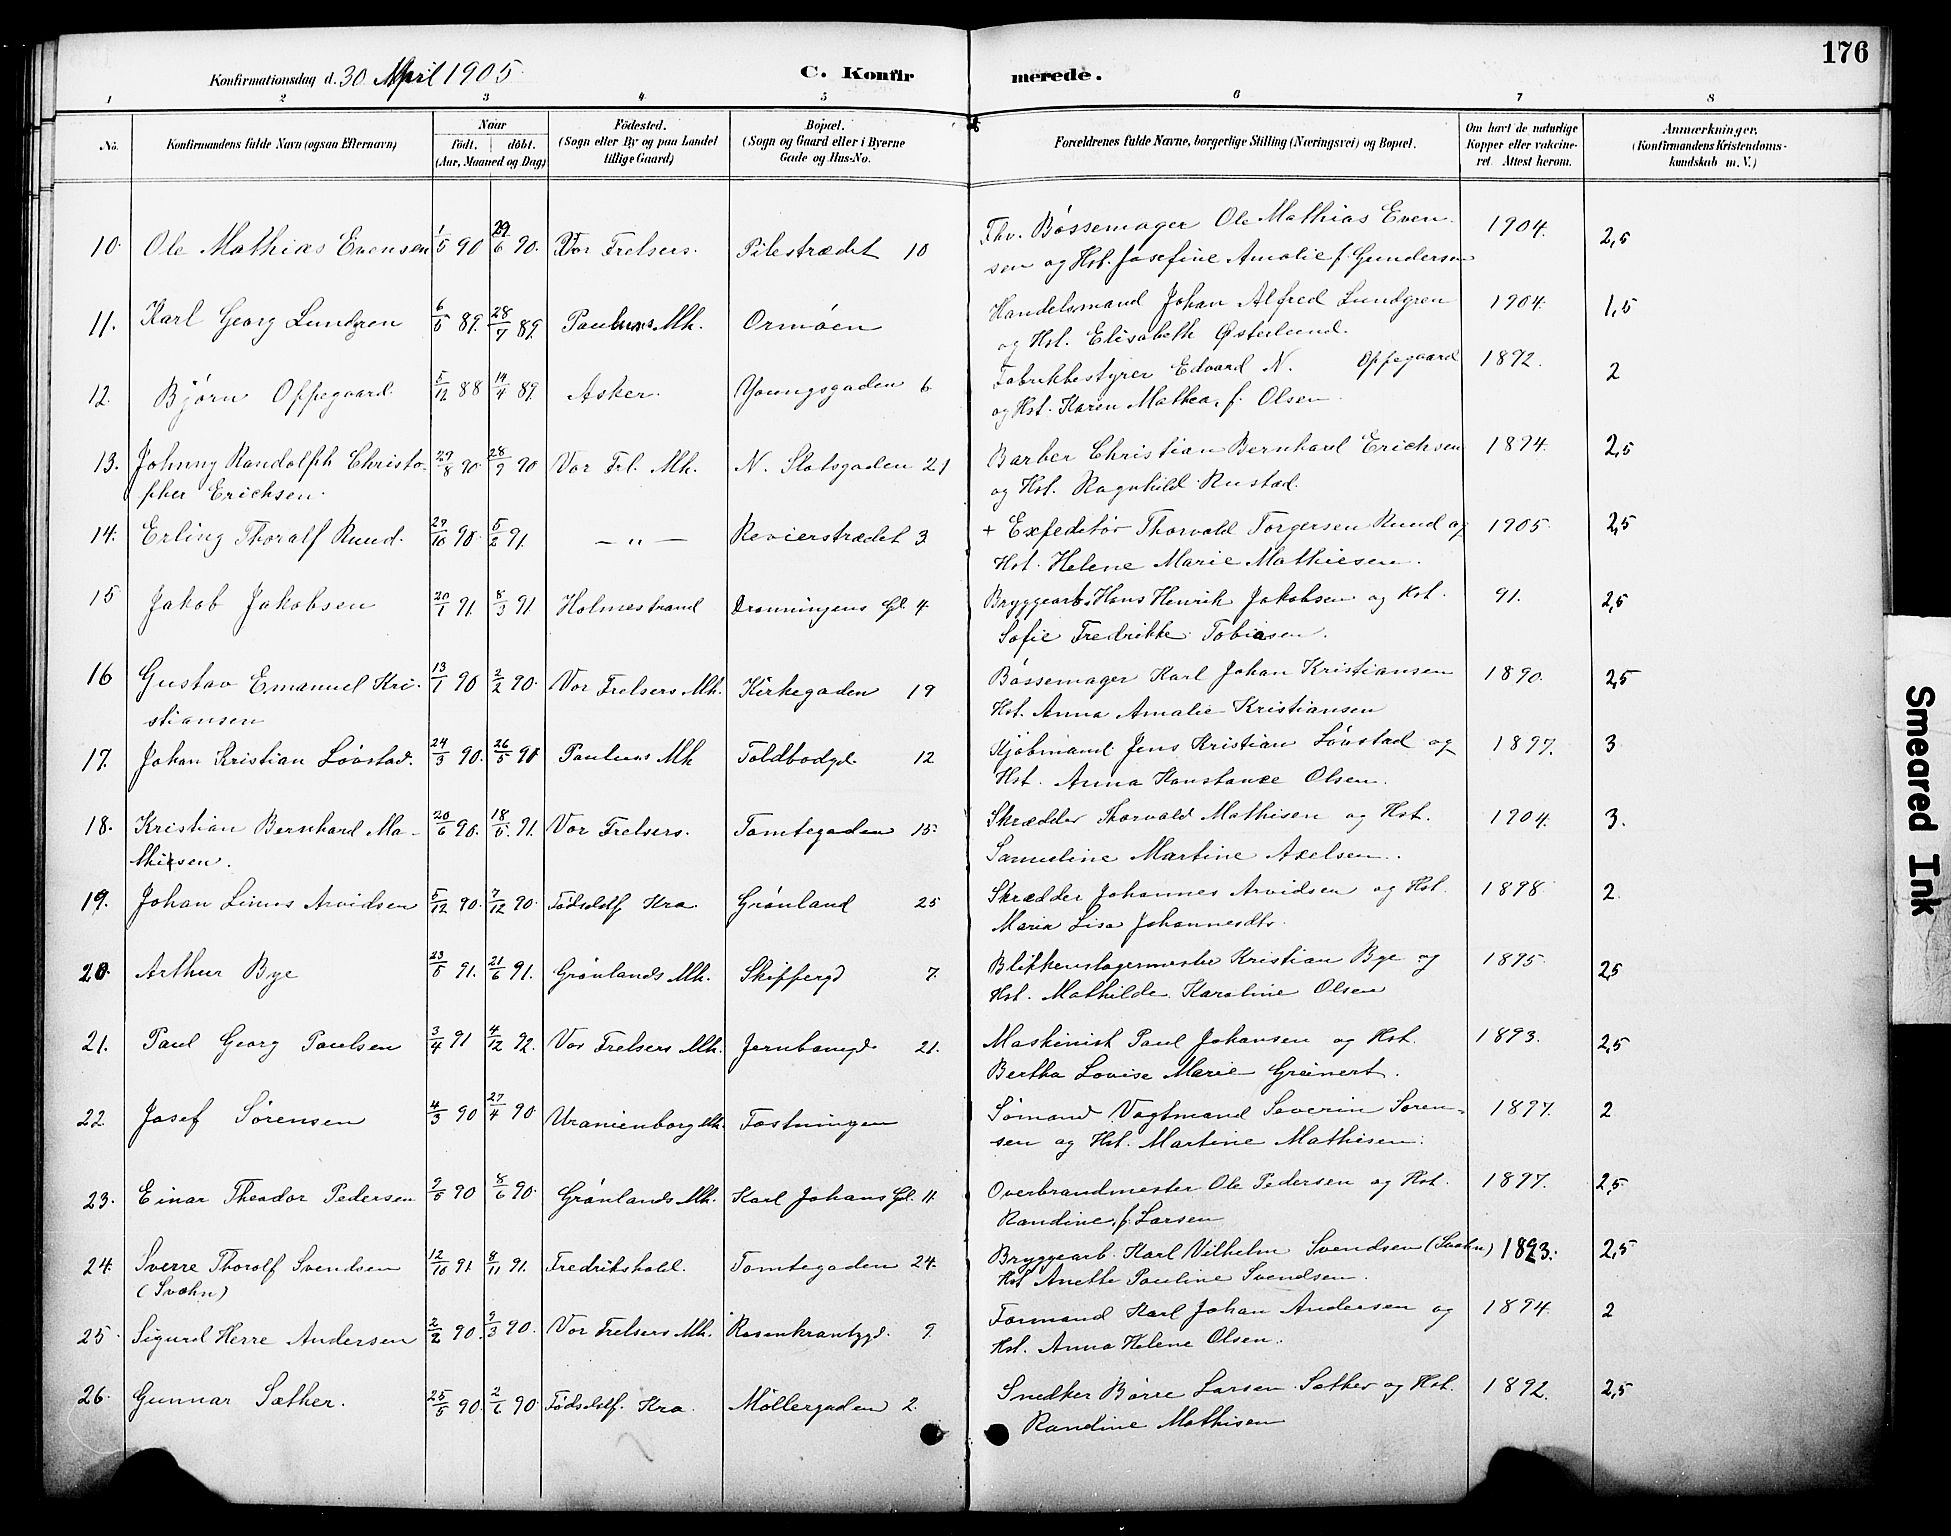 176
Konfirmationsdag d. 30 April 1905.
C. Konfirmerede.
1 2 3 4 5 6 7 8
No.
Konfirmandens fulde Navn (ogsaa Efternavn)
Naar
Födt. döbt.
(Aar, Maaned og Dag)
Födested.
(Sogn eller By og paa Landet
tillige Gaard)
Bopæl.
(Sogn og Gaard eller i Byerne
Gade og Hus-No.
Forældrenes fulde Navne, borgerlige Stilling (Næringsvei) og Bopæl.
Om havt de naturlige
Kopper eller vakcine-
ret. Attest herom.
Anmærkninger.
(Konfirmandens Kristendoms-
kundskab m. V.)
10. Ole Mathias Evensen 1/5 90 29/6 90. Vor Frelsers. Pilestrædet 10 Fhv. Bössemager Ole Mathias Even- 1904. 2,5
sen og Hst. Josefine Amalie f. Gundersen
11. Karl Georg Lundgren 6/5 89. 28/7 89. Paulus Mh. Ormöen Handelsmand Johan Alfred Lundgren 1904. 1,5
og Hst. Elisabeth Østerlund.
12. Björn Oppegaard 5/12 88 14/4 89. Asker. Youngsgaden 6 Fabrikbestyrer Edvard N. Oppegaard 1892. 2
og Hst. Karen Mathea, f. Olsen.
13. Johnny Randolph Christo- 29/8 90. 28/9 90 Vor Frl. Mh. N. Slotsgaden 21 Barber Christian Bernhard Erichsen 1894. 2,5
pher Erichsen. og Hst. Ragnhild Rustad.
14. Erling Thoralf Ruud. 27/10 90. 5/2 91. — " — Revierstrædet 3. + Expeditör Thorvald Torgersen Ruud og 1905. 2,5
Hst. Helene Marie Mathiesen.
15 Jakob Jakobsen 20/1 91. 8/3 91. Holmestrand Dronningens Gd. 4 Bryggearb. Hans Henrik Jakobsen og Hst. 91. 2,5
Sofie Fredrikke Tobiasen.
16 Gustav Emanuel Kri- 13/1 90 2/2 90. Vor Frelsers Mh. Kirkegaden 19 Bössemager Karl Johan Kristiansen 1890. 2,5
stiansen Hst. Anna Amalie Kristiansen
17. Johan Kristian Lövstad. 24/3 90. 26/5 90 Paulus Mh Toldbodgd. 12 Kjöbmand Jens Kristian Lövstad og 1897. 3
Hst. Anna Konstanse Olsen.
18. Kristian Bernhard Ma- 20/6 90. 18/5. 91. Vor Frelsers. Tomtegaden 15 Skrædder Thorvald Mathisen og Hst. 1904. 3.
thisen. Samuline Martine Axelsen.
19. Johan Linus Arvidsen 5/12 90. 7/12 90. Födselstf. Kra. Grönland 25 Skrædder Johannes Arvidsen og Hst. 1898. 2.
Maria Lisa Johannesdtr.
20. Arthur Bye 23/5 91. 21/6 91. Grönlands Mh. Skippergd 7. Blikkenslagermester Kristian Bye og 1895 2,5
Hst. Mathilde Karoline Olsen
21. Paul Georg Paulsen 3/4 91 4/12 92. Vor Frelsers Mh. Jernbanegd. 21. Maskinist Paul Johansen og Hst. 1893. 2,5
Bertha Lovise Marie Greinert.
22. Josef Sörensen 4/3 90 27/4 90 Uranienborg Mh. Fæstningen Sömand Vagtmand Severin Sören- 1897. 2
sen og Hst. Martine Mathisen.
23. Einar Theodor Pedersen 2/5 90 8/6 90. Grönlands Mh. Karl Johans Gd. 11. Overbrandmester Ole Pedersen og Hst. 1897. 2,5
Randine, f. Larsen
24. Sverre Thorolf Svendsen 12/10 91. 8/11 91. Fredrikshald. Tomtegaden 24. Bryggearb. Karl Vilhelm Svendsen (Svahn) 1893. 2,5
(Svahn) Hst Anette Pauline Svendsen.
25. Sigurd Herre Andersen 2/2 90. 9/3 90. Vor Frelsers Mh. Rosenkrantzgd. 9. Formand Karl Johan Andersen og 1894. 2
Hst. Anna Helene Olsen.
26. Gunnar Sæther. 25/5 90. 2/6 90. Födselstf. Kra. Möllergaden 2. Snedker Börre Larsen Sæther og Hst. 1892. 2,5
Randine Mathisen
Smeared Ink